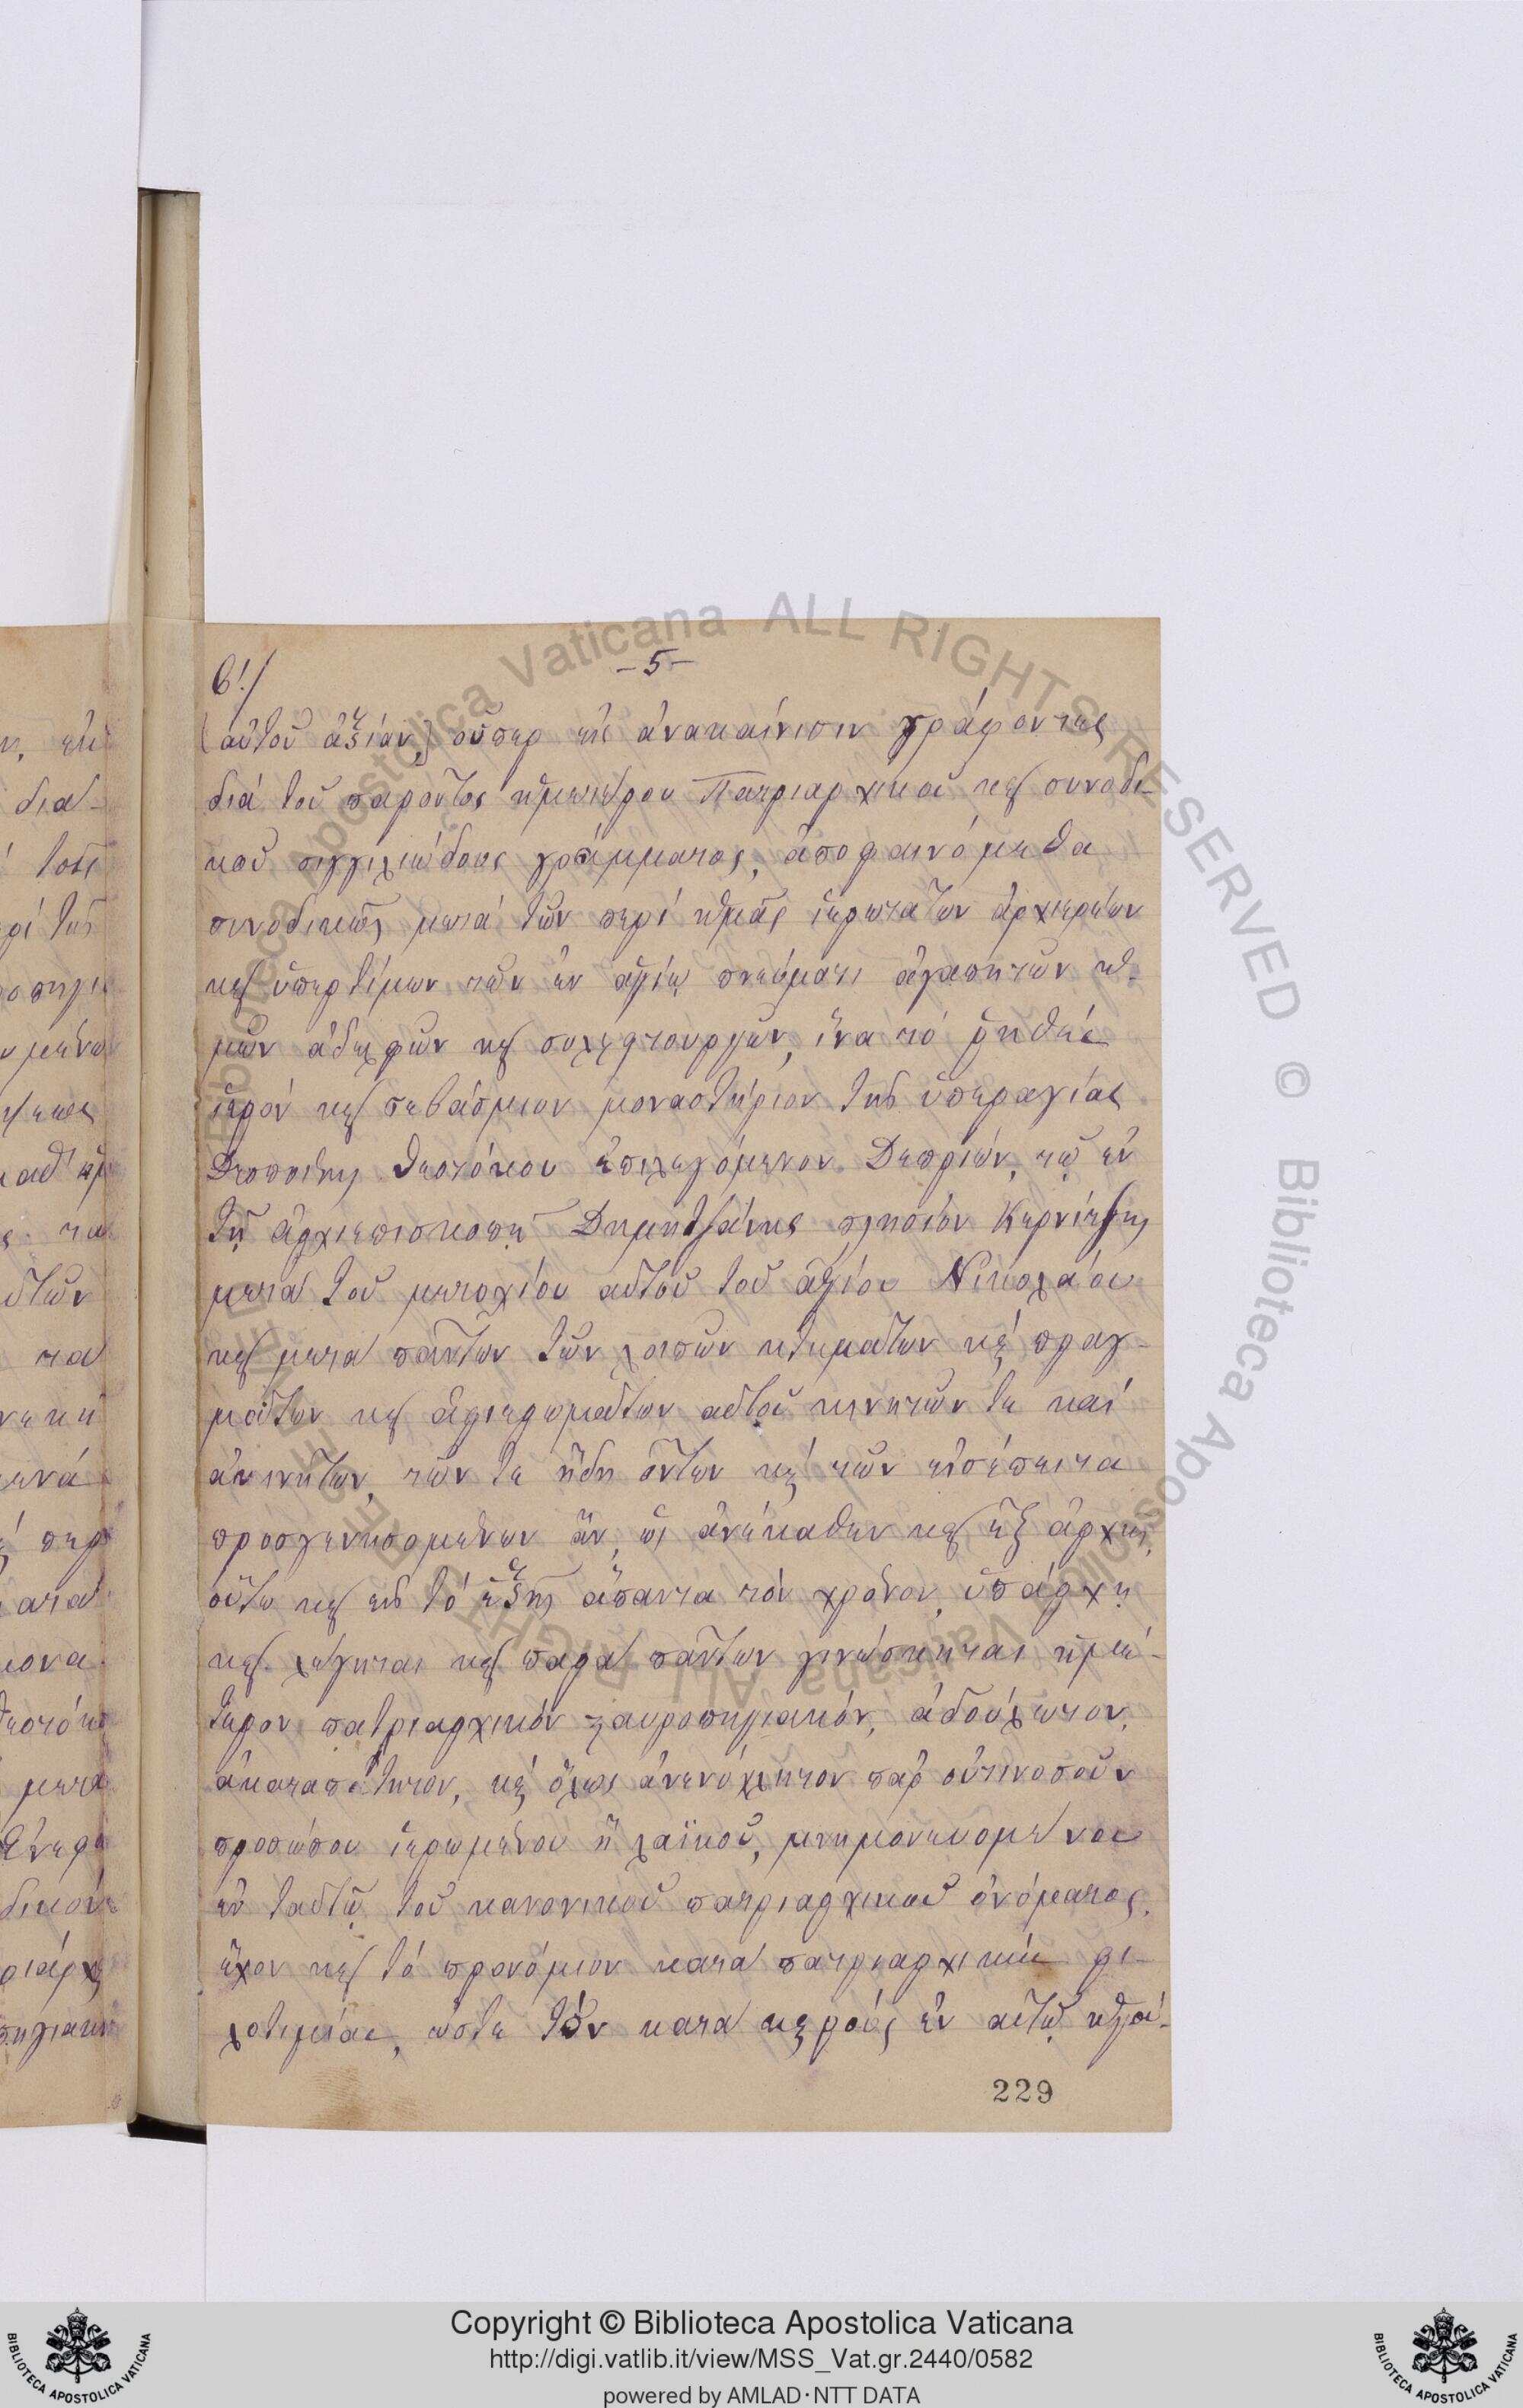 β!/ -5-
(αὐτοῦ ἀξίαν,) οὕπερ εἰς ἀνακαίνισιν γράφοντες
διά τοῦ παρόντος ἡμετέρου Πατριαρχικοῦ καὶ συνοδι-
κοῦ σιγγιλιώδους γράμματος, ἀποφαινόμεθα
συνοδικῶς μετά τῶν περί ἡμᾶς ἱερωτάτων ἀρχιερέων
καὶ ὑπερτίμων τῶν ἐν ἁγίῳ πνεύματι ἀγαπητῶν ἡ-
μῶν ἀδελφῶν καὶ συλλειτουργῶν, ἵνα τό ῥηθέν
ἱερόν καὶ σεβάσμιον μοναστήριον τῆς ὑπεραγίας
Δεσποίνης Θεοτόκου ἐπιλεγόμενον
τῇ ἀρχιεπισκοπῇ Δημητζάνης πλησίον Κερνίτζης
μετά τοῦ μετοχίου αὐτοῦ τοῦ ἁγίου Νικολάου
καὶ μετά πάντων τῶν λοιπῶν κτημάτων καί πραγ-
μάτων καὶ ἀφιερωμάτων αὐτοῦ κινητῶν τε καί
ἀκινήτων, τῶν τε ἤδη ὄντων καί τῶν εἰσέπειτα
προσγενησομένων ἄν, ὡς ἀνέκαθεν καὶ ἐξ ἀρχῆς,
οὕτω καὶ εἰς τό ἑξῆς ἅπαντα τόν χρόνον, ὑπάρχῃ
καὶ λέγηται καὶ παρά πάντων γινώσκηται ἡμέ-
τερον πατριαρχικόν σταυροπηγιακόν, ἀδούλωτον,
ἀκαταπάτητον, καί ὅλως ἀνενόχλητον παρ' οὑτινοσοῦν
προσώπου ἱερωμένου ἤ λαϊκοῦ, μνημονευομένου
ἐν ταὐτῷ τοῦ κανονικοῦ πατριαρχικοῦ ὀνόματος,
ἔχον καὶ τό προνόμιον κατά πατριαρχικήν φι-
λοτιμίαν, ὥστε τόν κατά καιρούς ἐν αὐτῷ ἡγού-
229
Copyright © Biblioteca Apostolica Vaticana
http://digi.vatlib.it/view/MSS_Vat.gr.2440/0582
powered by AMLAD·NTT DATA